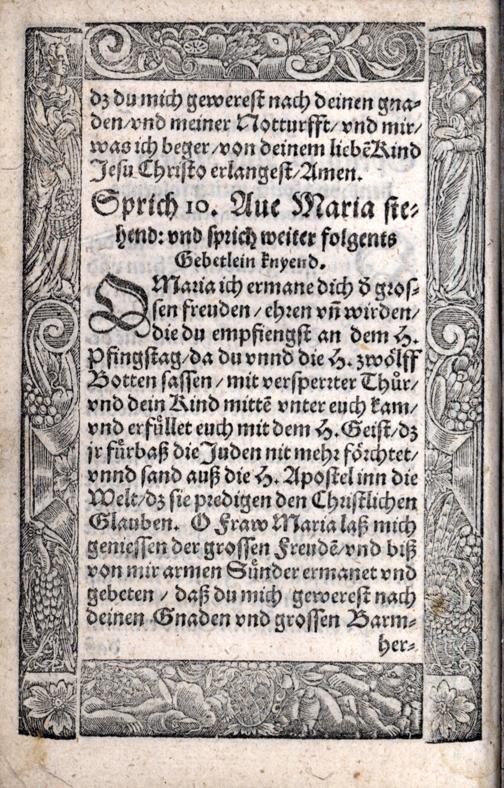 dz du mich gewerest nach deinen gna-
den/ vnd meiner Notturfft/ vnd mir/
was ich beger/ von deinem liebē Kind
Jesu Christo erlangest/ Amen.
Sprich 10. Aue Maria ste-
hend: vnd sprich weiter folgents
Gebetlein knyend.
O Maria ich ermane dich ð gros-
sen freuden/ ehren vñ wirden/
die du empfiengst an dem H.
Pfingstag/ da du vnnd die H. zwölff
Botten sassen/ mit versperrter Thür/
vnd dein Kind mittē vnter euch kam/
vnd erfüllet euch mit dem H. Geist/ dz
jr fürbaß die Juden nit mehr förchtet/
vnnd sand auß die H. Apostel inn die
Welt/ dz sie predigen den Christlichen
Glauben. O Fraw Maria laß mich
geniessen der grossen Freudē/ vnd biß
von mir armen Sünder ermanet vnd
gebeten/ daß du mich gewerest nach
deinen Gnaden vnd grossen Barm-
her-